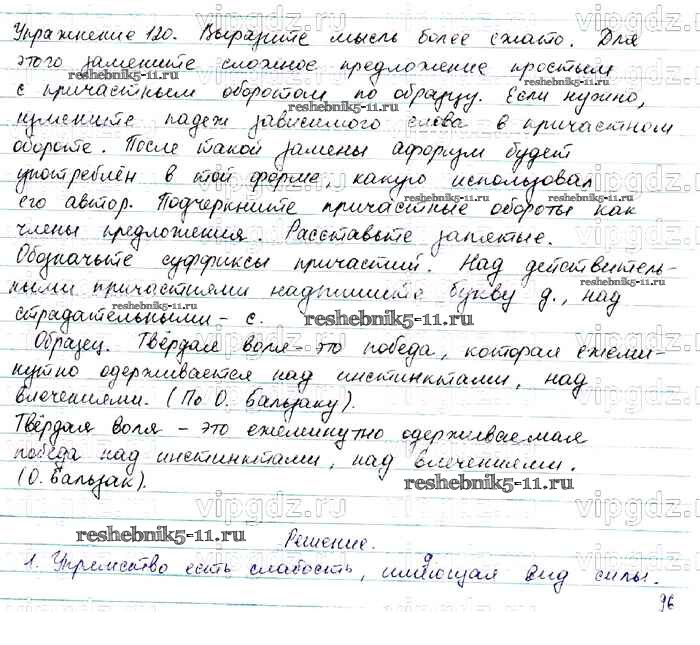 Упражнение 120. Выразите мысль более сжато. Для
этого замените сложное предложение простым
с причастным оборотом по образцу. Если нужно,
измените падеж зависимого слова в причастном
обороте. После такой замены афоризм будет
употреблён в той форме, какую использовал
его автор. Подчеркните причастные обороты как
члены предложения. Расставьте запятые.
Обозначьте суффиксы причастий. Над действитель-
ными причастиями надпишите букву д., над
страдательными - с.
Образец. Твёрдая воля - это победа, которая ежеми-
нутно одерживается над инстинктами, над
влечениями. (По О. Бальзаку).
Твёрдая воля - это ежеминутно одерживаемая
победа над инстинктами, над влечениями.
(О. Бальзак).
Решение.
д
1. Упрямство есть слабость, имеющая вид силы.
96
vipgdz.ru
reshebnik5-11.ru